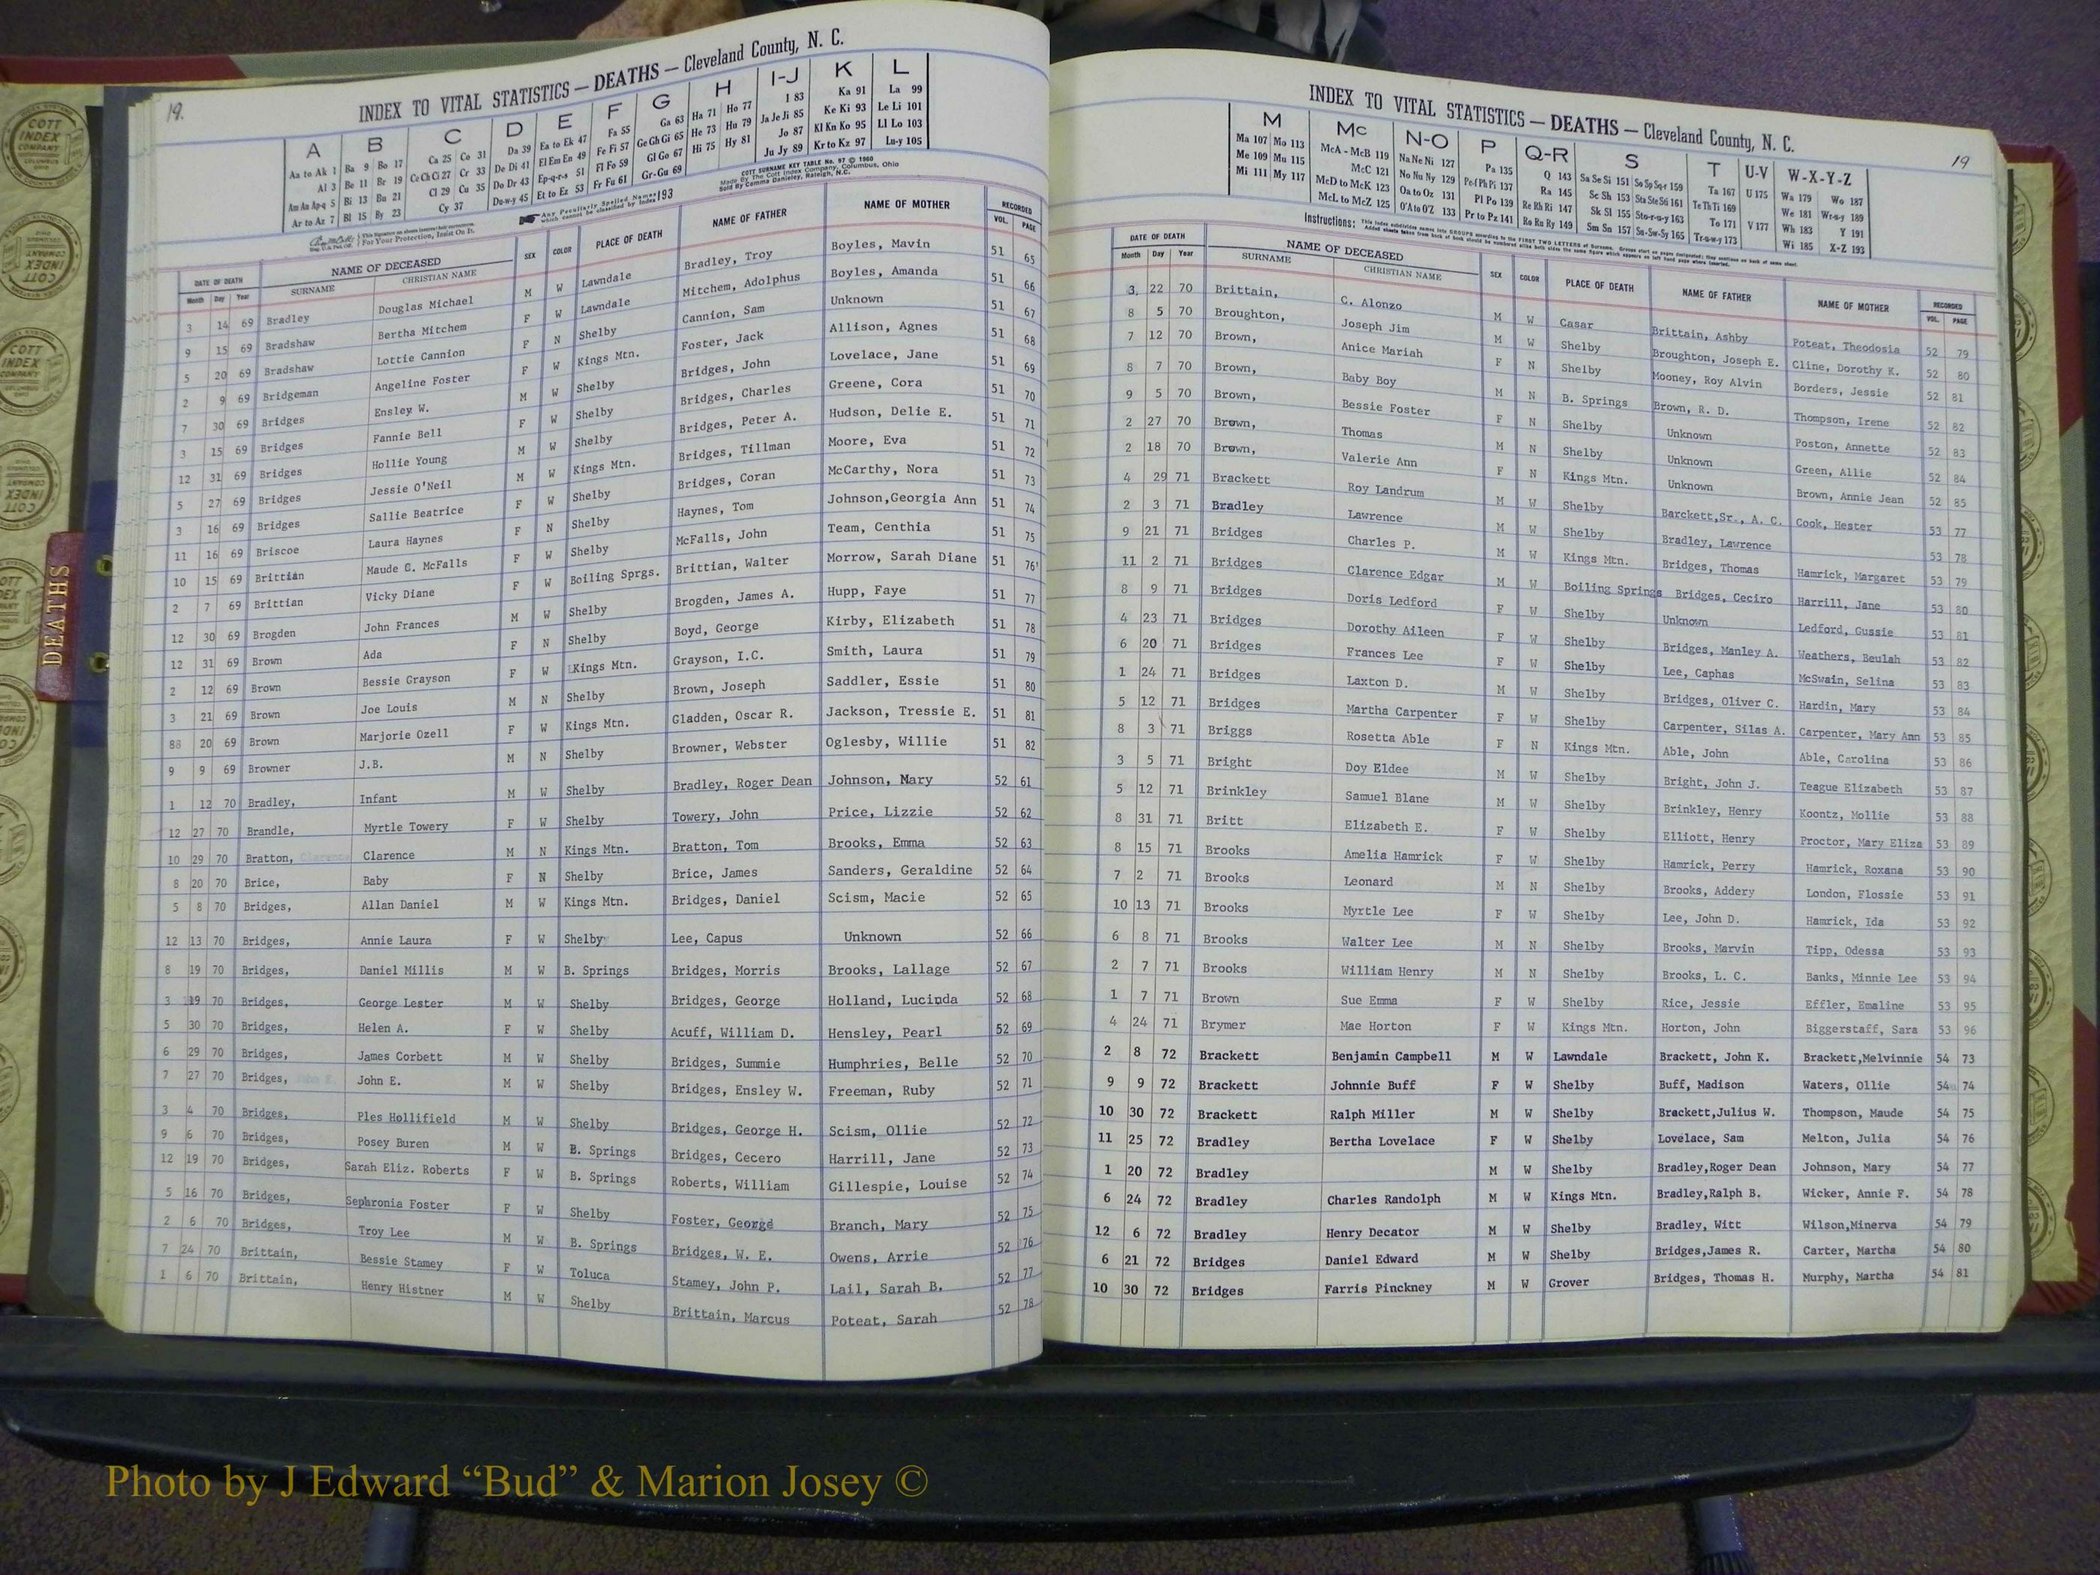 19.
INDEX TO VITAL STATISTICS — DEATHS — Cleveland County, N. C.
A B C D E F G H I-J K L
Aa to Ak 1 Ba 9 Bo 17 Ca 25 Co 31 Da 39 Ea to Ek 47 Fa 55 Ga 63 Ha 71 Ho 77 I 83 Ka 91 La 99
Al 3 Be 11 Br 19 Ce Ch Ci 27 Cr 33 De Di 41 El Em En 49 Fe Fi 57 Ge Gh Gi 65 He 73 Hu 79 Ja Je Ji 85 Ke Ki 93 Le Li 101
Am An Ap-q 5 Bi 13 Bu 21 Cl 29 Cu 35 Do Dr 43 Ep-q-r-s 51 Fl Fo 59 Gl Go 67 Hi 75 Hy 81 Jo 87 Kl Kn Ko 95 Ll Lo 103
Ar to Az 7 Bl 15 By 23 Cy 37 Du-w-y 45 Et to Ez 53 Fr Fu 61 Gr-Gu 69 Ju Jy 89 Kr to Kz 97 Lu-y 105
COTT SURNAME KEY TABLE No. 97 © 1960
Made By The Cott Index Company, Columbus, Ohio
Sold By Comma Danieley, Raleigh, N.C.
Any Peculiarly Spelled Names which cannot be classified by Index 193
DATE OF DEATH NAME OF DECEASED SEX COLOR PLACE OF DEATH NAME OF FATHER NAME OF MOTHER RECORDED
Month Day Year SURNAME CHRISTIAN NAME VOL. PAGE
3 14 69 Bradley Douglas Michael M W Lawndale Bradley, Troy Boyles, Mavin 51 65
9 15 69 Bradshaw Bertha Mitchem F W Lawndale Mitchem, Adolphus Boyles, Amanda 51 66
5 20 69 Bradshaw Lottie Cannion F N Shelby Cannion, Sam Unknown 51 67
2 9 69 Bridgeman Angeline Foster F W Kings Mtn. Foster, Jack Allison, Agnes 51 68
7 30 69 Bridges Ensley W. M W Shelby Bridges, John Lovelace, Jane 51 69
3 15 69 Bridges Fannie Bell F W Shelby Bridges, Charles Greene, Cora 51 70
12 31 69 Bridges Hollie Young M W Shelby Bridges, Peter A. Hudson, Delie E. 51 71
5 27 69 Bridges Jessie O'Neil M W Kings Mtn. Bridges, Tillman Moore, Eva 51 72
3 16 69 Bridges Sallie Beatrice F W Shelby Bridges, Coran McCarthy, Nora 51 73
11 16 69 Briscoe Laura Haynes F N Shelby Haynes, Tom Johnson,Georgia Ann 51 74
10 15 69 Brittian Maude G. McFalls F W Shelby McFalls, John Team, Centhia 51 75
2 7 69 Brittian Vicky Diane F W Boiling Sprgs. Brittian, Walter Morrow, Sarah Diane 51 76
12 30 69 Brogden John Frances M W Shelby Brogden, James A. Hupp, Faye 51 77
12 31 69 Brown Ada F N Shelby Boyd, George Kirby, Elizabeth 51 78
2 12 69 Brown Bessie Grayson F W Kings Mtn. Grayson, I.C. Smith, Laura 51 79
3 21 69 Brown Joe Louis M N Shelby Brown, Joseph Saddler, Essie 51 80
88 20 69 Brown Marjorie Ozell F W Kings Mtn. Gladden, Oscar R. Jackson, Tressie E. 51 81
9 9 69 Browner J.B. M N Shelby Browner, Webster Oglesby, Willie 51 82
1 12 70 Bradley, Infant M W Shelby Bradley, Roger Dean Johnson, Mary 52 61
12 27 70 Brandle, Myrtle Towery F W Shelby Towery, John Price, Lizzie 52 62
10 29 70 Bratton, Clarence M N Kings Mtn. Bratton, Tom Brooks, Emma 52 63
8 20 70 Brice, Baby F N Shelby Brice, James Sanders, Geraldine 52 64
5 8 70 Bridges, Allan Daniel M W Kings Mtn. Bridges, Daniel Scism, Macie 52 65
12 13 70 Bridges, Annie Laura F W Shelby Lee, Capus Unknown 52 66
8 19 70 Bridges, Daniel Millis M W B. Springs Bridges, Morris Brooks, Lallage 52 67
3 19 70 Bridges, George Lester M W Shelby Bridges, George Holland, Lucinda 52 68
5 30 70 Bridges, Helen A. F W Shelby Acuff, William D. Hensley, Pearl 52 69
6 29 70 Bridges, James Corbett M W Shelby Bridges, Summie Humphries, Belle 52 70
7 27 70 Bridges, John E. M W Shelby Bridges, Ensley W. Freeman, Ruby 52 71
3 4 70 Bridges, Ples Hollifield M W Shelby Bridges, George H. Scism, Ollie 52 72
9 6 70 Bridges, Posey Buren M W B. Springs Bridges, Cecero Harrill, Jane 52 73
12 19 70 Bridges, Sarah Eliz. Roberts F W B. Springs Roberts, William Gillespie, Louise 52 74
5 16 70 Bridges, Sephronia Foster F W Shelby Foster, George Branch, Mary 52 75
2 6 70 Bridges, Troy Lee M W B. Springs Bridges, W. E. Owens, Arrie 52 76
7 24 70 Brittain, Bessie Stamey F W Toluca Stamey, John P. Lail, Sarah B. 52 77
1 6 70 Brittain, Henry Histner M W Shelby Brittain, Marcus Poteat, Sarah 52 78
INDEX TO VITAL STATISTICS — DEATHS — Cleveland County, N. C.
19
M Mc N-O P Q-R S T U-V W-X-Y-Z
Ma 107 Mo 113 McA - McB 119 Na Ne Ni 127 Pa 135 Q 143 Sa Se Si 151 So Sp Sq-r 159 Ta 167 U 175 Wa 179 Wo 187
Me 109 Mu 115 McC 121 No Nu Ny 129 Pe-f Ph Pi 137 Ra 145 Sc Sh 153 Sta Ste Sti 161 Te Th Ti 169 We 181 Wr-u-y 189
Mi 111 My 117 McD to McK 123 Oa to Oz 131 Pl Po 139 Re Rh Ri 147 Sk Sl 155 Sto-r-u-y 163 To 171 V 177 Wh 183 Y 191
McL to McZ 125 O'A to O'Z 133 Pr to Pz 141 Ro Ru Ry 149 Sm Sn 157 Su-Sw-Sy 165 Tr-u-w-y 173 Wi 185 X-Z 193
Instructions:
DATE OF DEATH NAME OF DECEASED SEX COLOR PLACE OF DEATH NAME OF FATHER NAME OF MOTHER RECORDED
Month Day Year SURNAME CHRISTIAN NAME VOL. PAGE
3, 22 70 Brittain, C. Alonzo M W Casar Brittain, Ashby Poteat, Theodosia 52 79
8 5 70 Broughton, Joseph Jim M W Shelby Broughton, Joseph E. Cline, Dorothy K. 52 80
7 12 70 Brown, Anice Mariah F N Shelby Mooney, Roy Alvin Borders, Jessie 52 81
8 7 70 Brown, Baby Boy M N B. Springs Brown, R. D. Thompson, Irene 52 82
9 5 70 Brown, Bessie Foster F N Shelby Unknown Poston, Annette 52 83
2 27 70 Brown, Thomas M N Shelby Unknown Green, Allie 52 84
2 18 70 Brown, Valerie Ann F N Kings Mtn. Unknown Brown, Annie Jean 52 85
4 29 71 Brackett Roy Landrum M W Shelby Barckett,Sr., A. C. Cook, Hester 53 77
2 3 71 Bradley Lawrence M W Shelby Bradley, Lawrence 53 78
9 21 71 Bridges Charles P. M W Kings Mtn. Bridges, Thomas Hamrick, Margaret 53 79
11 2 71 Bridges Clarence Edgar M W Boiling Springs Bridges, Ceciro Harrill, Jane 53 80
8 9 71 Bridges Doris Ledford F W Shelby Unknown Ledford, Gussie 53 81
4 23 71 Bridges Dorothy Aileen F W Shelby Bridges, Manley A. Weathers, Beulah 53 82
6 20 71 Bridges Frances Lee F W Shelby Lee, Caphas McSwain, Selina 53 83
1 24 71 Bridges Laxton D. M W Shelby Bridges, Oliver C. Hardin, Mary 53 84
5 12 71 Bridges Martha Carpenter F W Shelby Carpenter, Silas A. Carpenter, Mary Ann 53 85
8 3 71 Briggs Rosetta Able F N Kings Mtn. Able, John Able, Carolina 53 86
3 5 71 Bright Doy Eldee M W Shelby Bright, John J. Teague Elizabeth 53 87
5 12 71 Brinkley Samuel Blane M W Shelby Brinkley, Henry Koontz, Mollie 53 88
8 31 71 Britt Elizabeth E. F W Shelby Elliott, Henry Proctor, Mary Eliza 53 89
8 15 71 Brooks Amelia Hamrick F W Shelby Hamrick, Perry Hamrick, Roxana 53 90
7 2 71 Brooks Leonard M N Shelby Brooks, Addery London, Flossie 53 91
10 13 71 Brooks Myrtle Lee F W Shelby Lee, John D. Hamrick, Ida 53 92
6 8 71 Brooks Walter Lee M N Shelby Brooks, Marvin Tipp, Odessa 53 93
2 7 71 Brooks William Henry M N Shelby Brooks, L. C. Banks, Minnie Lee 53 94
1 7 71 Brown Sue Emma F W Shelby Rice, Jessie Effler, Emaline 53 95
4 24 71 Brymer Mae Horton F W Kings Mtn. Horton, John Biggerstaff, Sara 53 96
2 8 72 Brackett Benjamin Campbell M W Lawndale Brackett, John K. Brackett,Melvinnie 54 73
9 9 72 Brackett Johnnie Buff F W Shelby Buff, Madison Waters, Ollie 54 74
10 30 72 Brackett Ralph Miller M W Shelby Brackett,Julius W. Thompson, Maude 54 75
11 25 72 Bradley Bertha Lovelace F W Shelby Lovelace, Sam Melton, Julia 54 76
1 20 72 Bradley M W Shelby Bradley,Roger Dean Johnson, Mary 54 77
6 24 72 Bradley Charles Randolph M W Kings Mtn. Bradley,Ralph B. Wicker, Annie F. 54 78
12 6 72 Bradley Henry Decator M W Shelby Bradley, Witt Wilson,Minerva 54 79
6 21 72 Bridges Daniel Edward M W Shelby Bridges,James R. Carter, Martha 54 80
10 30 72 Bridges Farris Pinckney M W Grover Bridges, Thomas H. Murphy, Martha 54 81
DEATHS
COTT INDEX COMPANY COLUMBUS OHIO
Photo by J Edward “Bud” & Marion Josey ©